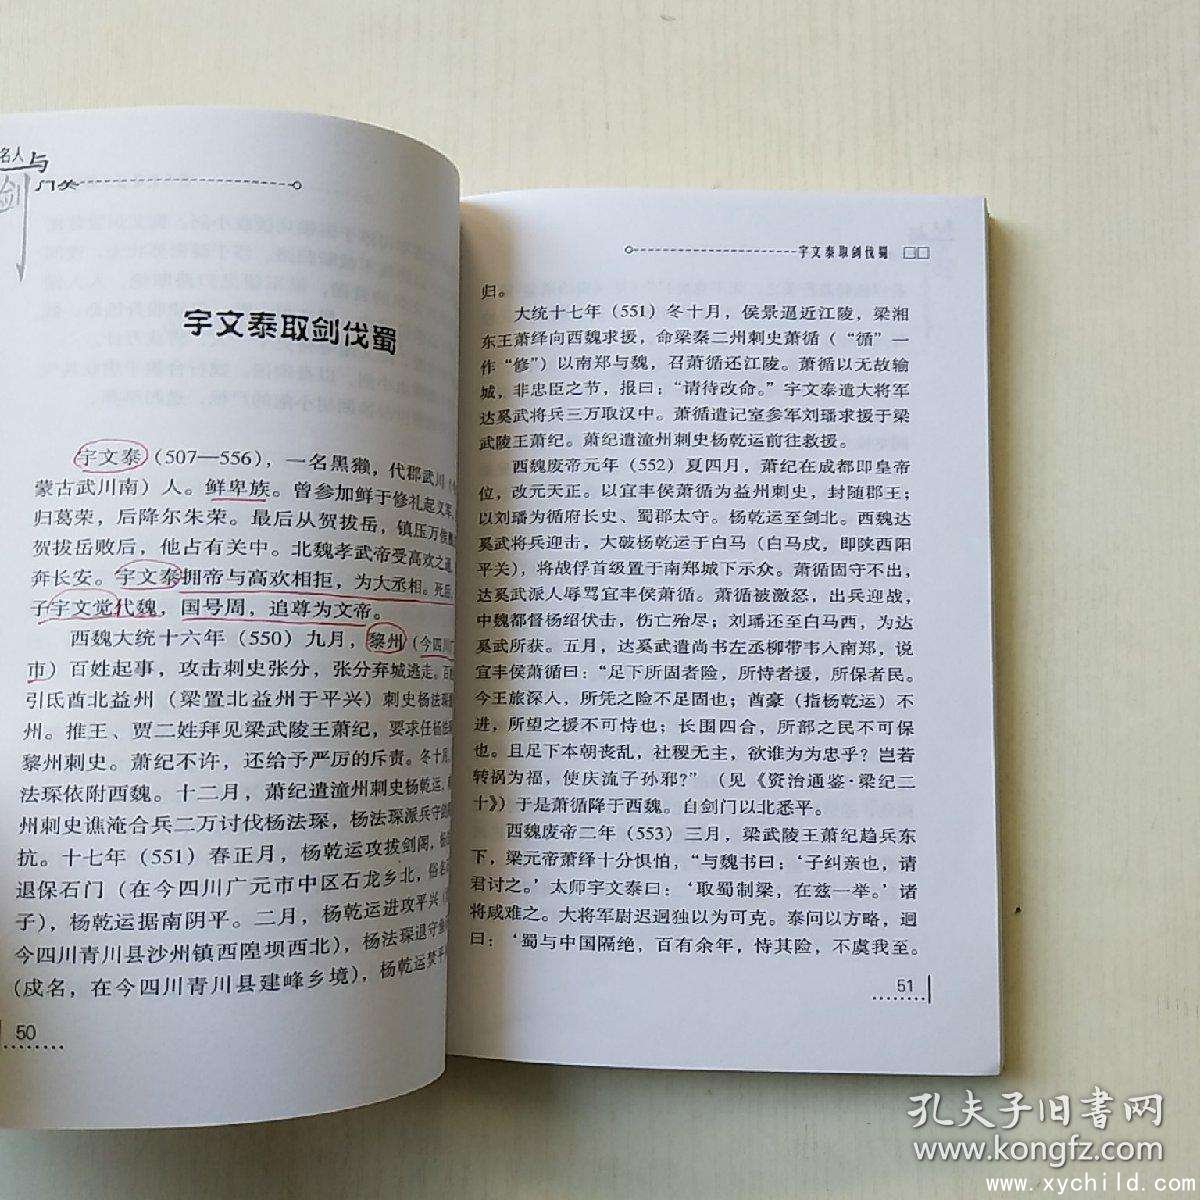 名人与
剑门关
宇文泰取剑伐蜀
宇文泰（507—556），一名黑獭，代郡武川
蒙古武川南）人。鲜卑族。曾参加鲜于修礼起义军，
归葛荣，后降尔朱荣。最后从贺拔岳，镇压万俟
贺拔岳败后，他占有关中。北魏孝武帝受高欢之逼，
奔长安。宇文泰拥帝与高欢相拒，为大丞相。死后，
子宇文觉代魏，国号周，追尊为文帝。
西魏大统十六年（550）九月，黎州（今四川广
市）百姓起事，攻击刺史张分，张分弃城逃走。百
引氐酋北益州（梁置北益州于平兴）刺史杨法琛
州。推王、贾二姓拜见梁武陵王萧纪，要求任杨法琛
黎州刺史。萧纪不许，还给予严厉的斥责。冬十月，
法琛依附西魏。十二月，萧纪遣潼州刺史杨乾运，
州刺史谯淹合兵二万讨伐杨法琛，杨法琛派兵守剑阁
抗。十七年（551）春正月，杨乾运攻拔剑阁，杨
退保石门（在今四川广元市中区石龙乡北，俗名
子），杨乾运据南阴平。二月，杨乾运进攻平兴（
今四川青川县沙州镇西隍坝西北），杨法琛退守鱼
（戍名，在今四川青川县建峰乡境），杨乾运焚平
50
宇文泰取剑伐蜀
归。
大统十七年（551）冬十月，侯景逼近江陵，梁湘
东王萧绎向西魏求援，命梁秦二州刺史萧循（“循”一
作“修”）以南郑与魏，召萧循还江陵。萧循以无故输
城，非忠臣之节，报曰：“请待改命。”宇文泰遣大将军
达奚武将兵三万取汉中。萧循遣记室参军刘璠求援于梁
武陵王萧纪。萧纪遣潼州刺史杨乾运前往救援。
西魏废帝元年（552）夏四月，萧纪在成都即皇帝
位，改元天正。以宜丰侯萧循为益州刺史，封随郡王；
以刘璠为循府长史、蜀郡太守。杨乾运至剑北。西魏达
奚武将兵迎击，大破杨乾运于白马（白马戍，即陕西阳
平关），将战俘首级置于南郑城下示众。萧循固守不出，
达奚武派人辱骂宜丰侯萧循。萧循被激怒，出兵迎战，
中魏都督杨绍伏击，伤亡殆尽；刘璠还至白马西，为达
奚武所获。五月，达奚武遣尚书左丞柳带韦入南郑，说
宜丰侯萧循曰：“足下所固者险，所恃者援，所保者民。
今王旅深入，所凭之险不足固也；酋豪（指杨乾运）不
进，所望之援不可恃也；长围四合，所部之民不可保
也。且足下本朝丧乱，社稷无主，欲谁为为忠乎？岂若
转祸为福，使庆流子孙邪？”（见《资治通鉴·梁纪二
十》）于是萧循降于西魏。自剑门以北悉平。
西魏废帝二年（553）三月，梁武陵王萧纪趋兵东
下，梁元帝萧绎十分惧怕，“与魏书曰：‘子纠亲也，请
君讨之。’太师宇文泰曰：‘取蜀制梁，在兹一举。’诸
将咸难之。大将军尉迟迥独以为可克。泰问以方略，迥
曰：‘蜀与中国隔绝，百有余年，恃其险，不虞我至。
51
孔夫子旧书网
www.kongfz.com
www.xychild.com